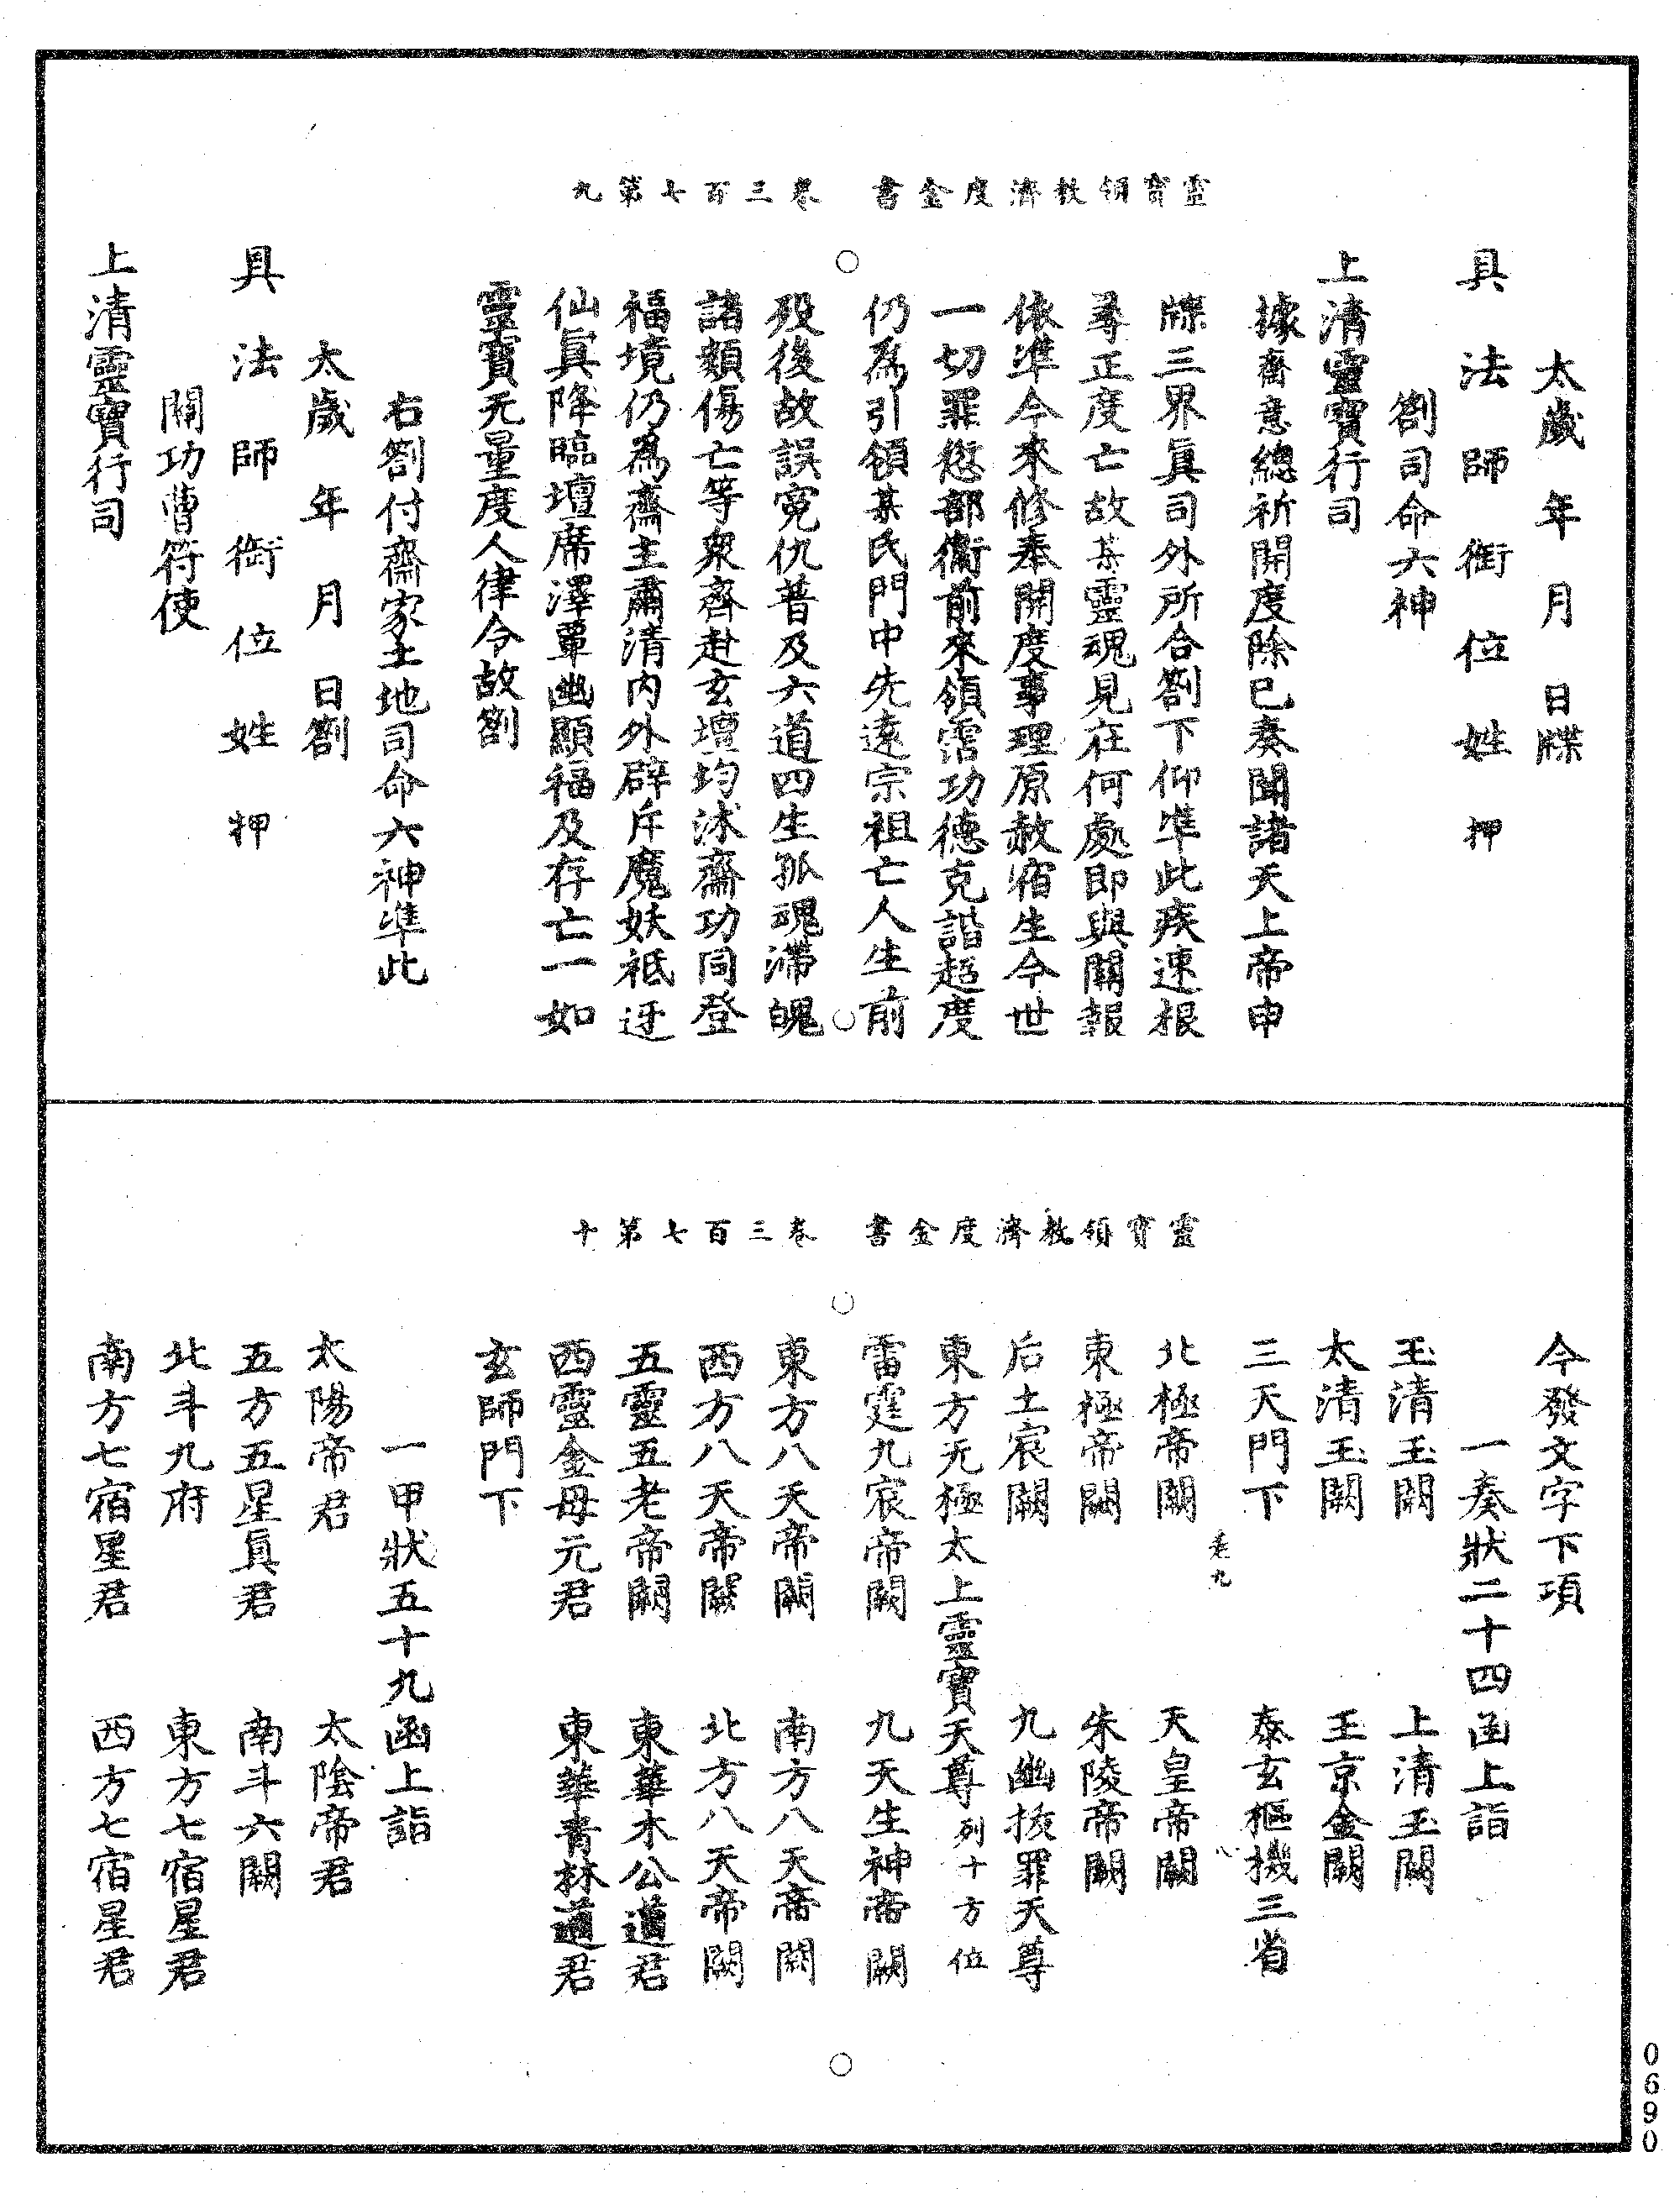 靈寶領教濟度金書　卷三百七第九
太歲　年　月　日牒
具法師銜位姓押
劄司命六神
上清靈寶行司
據齋意總祈開度除已奏聞諸天上帝申
牒三界眞司外所合劄下仰准此疾速根
尋正度亡故某靈魂見在何處即與關報
依准今來修奉開度事理原赦宿生今世
一切罪愆部衛前來領霑功德克諧超度
仍爲引領某氏門中先遠宗祖亡人生前
歿後故誤寃仇普及六道四生孤魂滯魄
諸類傷亡等衆齊赴玄壇均沐齋功同登
福境仍爲齋主肅清內外辟斥魔妖祗迓
仙眞降臨壇席澤覃幽顯福及存亡一如
靈寶无量度人律令故劄
右劄付齋家土地司命六神准此
太歲　年　月　日劄
具法師銜位姓押
關功曹符使
上清靈寶行司
靈寶領教濟度金書　卷三百七第十
今發文字下項
一奏狀二十四函上詣
玉清玉闕　上清玉闕
太清玉闕　玉京金闕
三天門下　泰玄樞機三省
北極帝闕　天皇帝闕
東極帝闕　朱陵帝闕
后土宸闕　九幽拔罪天尊
東方无極太上靈寶天尊列十方位
雷霆九宸帝闕　九天生神帝闕
東方八天帝闕　南方八天帝闕
西方八天帝闕　北方八天帝闕
五靈五老帝闕　東華木公道君
西靈金母元君　東華青林道君
玄師門下
一申狀五十九函上詣
太陽帝君　太陰帝君
五方五星眞君　南斗六闕
北斗九府　東方七宿星君
南方七宿星君　西方七宿星君
0690